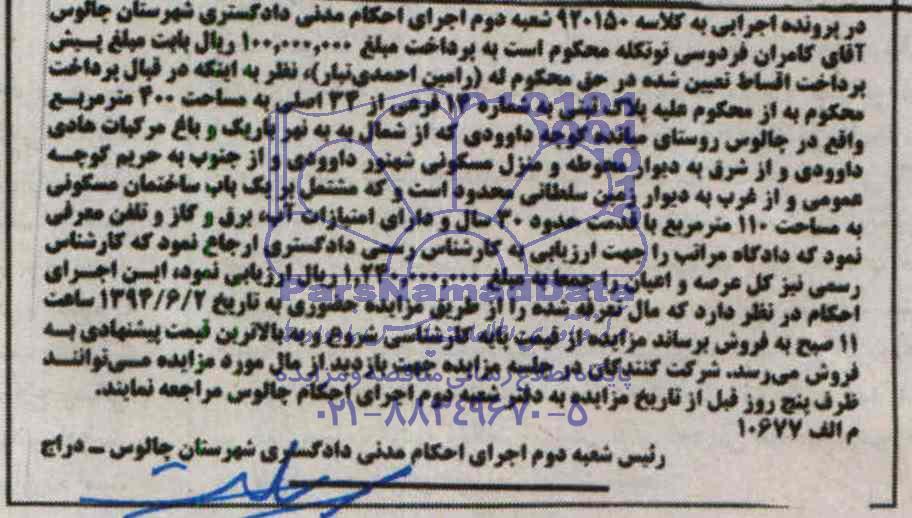 در پرونده اجرایی به کلاسه ۹۲۰۱۵۰ شعبه دوم اجرای احکام مدنی دادگستری شهرستان چالوس
آقای کامران فردوسی توتکله محکوم است به پرداخت مبلغ ۱۰۰,۰۰۰,۰۰۰ ریال بابت مبلغ پیش
پرداخت اقساط تعیین شده در حق محکوم له (رامین احمدی‌تبار)، نظر به اینکه در قبال پرداخت
محکوم به از محکوم علیه پلاک ثبتی به شماره فرعی از ۳۴ اصلی به مساحت ۴۰۰ مترمربع
واقع در چالوس روستای کوچه داوودی که از شمال به به نهر باریک و باغ مرکبات هادی
داوودی و از شرق به دیوار محوطه و منزل مسکونی داوودی و از جنوب به حریم کوچه
عمومی و از غرب به دیوار زمین سلطانی محدود است و که مشتمل بر یک باب ساختمان مسکونی
به مساحت ۱۱۰ مترمربع با قدمت حدود ۳۰ سال و دارای امتیازات آب، برق و گاز و تلفن معرفی
نمود که دادگاه مراتب را جهت ارزیابی به کارشناس رسمی دادگستری ارجاع نمود که کارشناس
رسمی نیز کل عرصه و اعیان را جمعا به مبلغ ۱,۲۴۰,۰۰۰,۰۰۰ ریال ارزیابی نمود، این اجرای
احکام در نظر دارد که مال تعرفه شده را از طریق مزایده حضوری به تاریخ ۱۳۹۴/۶/۲ ساعت
۱۱ صبح به فروش برساند مزایده از قیمت پایه کارشناسی شروع و به بالاترین قیمت پیشنهادی به
فروش می‌رسد. شرکت کنندگان در جلسه مزایده جهت بازدید از مال مورد مزایده می‌توانند
ظرف پنج روز قبل از تاریخ مزایده به دفتر شعبه دوم اجرای احکام چالوس مراجعه نمایند.
م الف ۱۰۶۷۷
رئیس شعبه دوم اجرای احکام مدنی دادگستری شهرستان چالوس ـ دراج
ParsNamadData
پایگاه اطلاع رسانی مناقصه و مزایده
۰۲۱-۸۸۳۴۹۶۷۰-۵